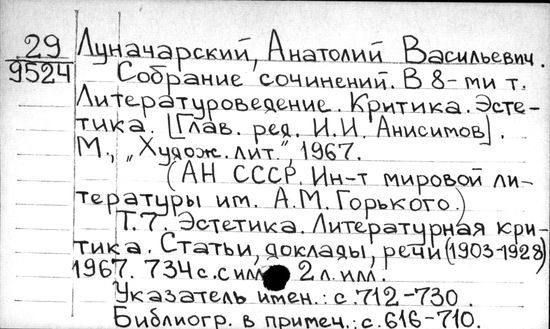 29
9524
Луначарский, Анатолий Васильевич.
Собрание сочинений. В 8-ми т.
Литературоведение. Критика. Эсте-
тика. [Глав. ред. И.И. Анисимов].
М., „Худож. лит.", 1967.
(АН СССР. Ин-т мировой ли-
тературы им. А.М. Горького.)
Т.7. Эстетика. Литературная кри-
тика. Статьи, доклады, речи (1903-1928)
1967. 734 с. с илл 2 л. илл.
Указатель имен.: с. 712-730.
Библиогр. в примеч.: с. 616-710.